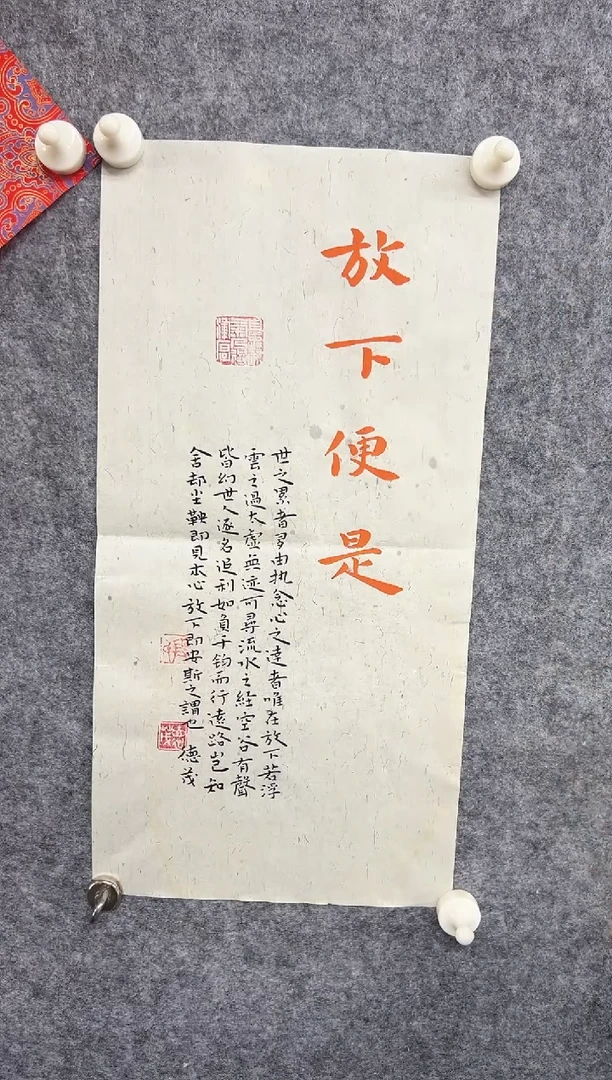 放下便是
世之累者多由执念心之達者唯在放下若浮
雲之過太虚無迹可尋流水之経空谷有聲
皆幻世人逐名追利如負千钧而行遠路岂知
舍却尘鞅即見本心放下即安斯之謂也 德茂